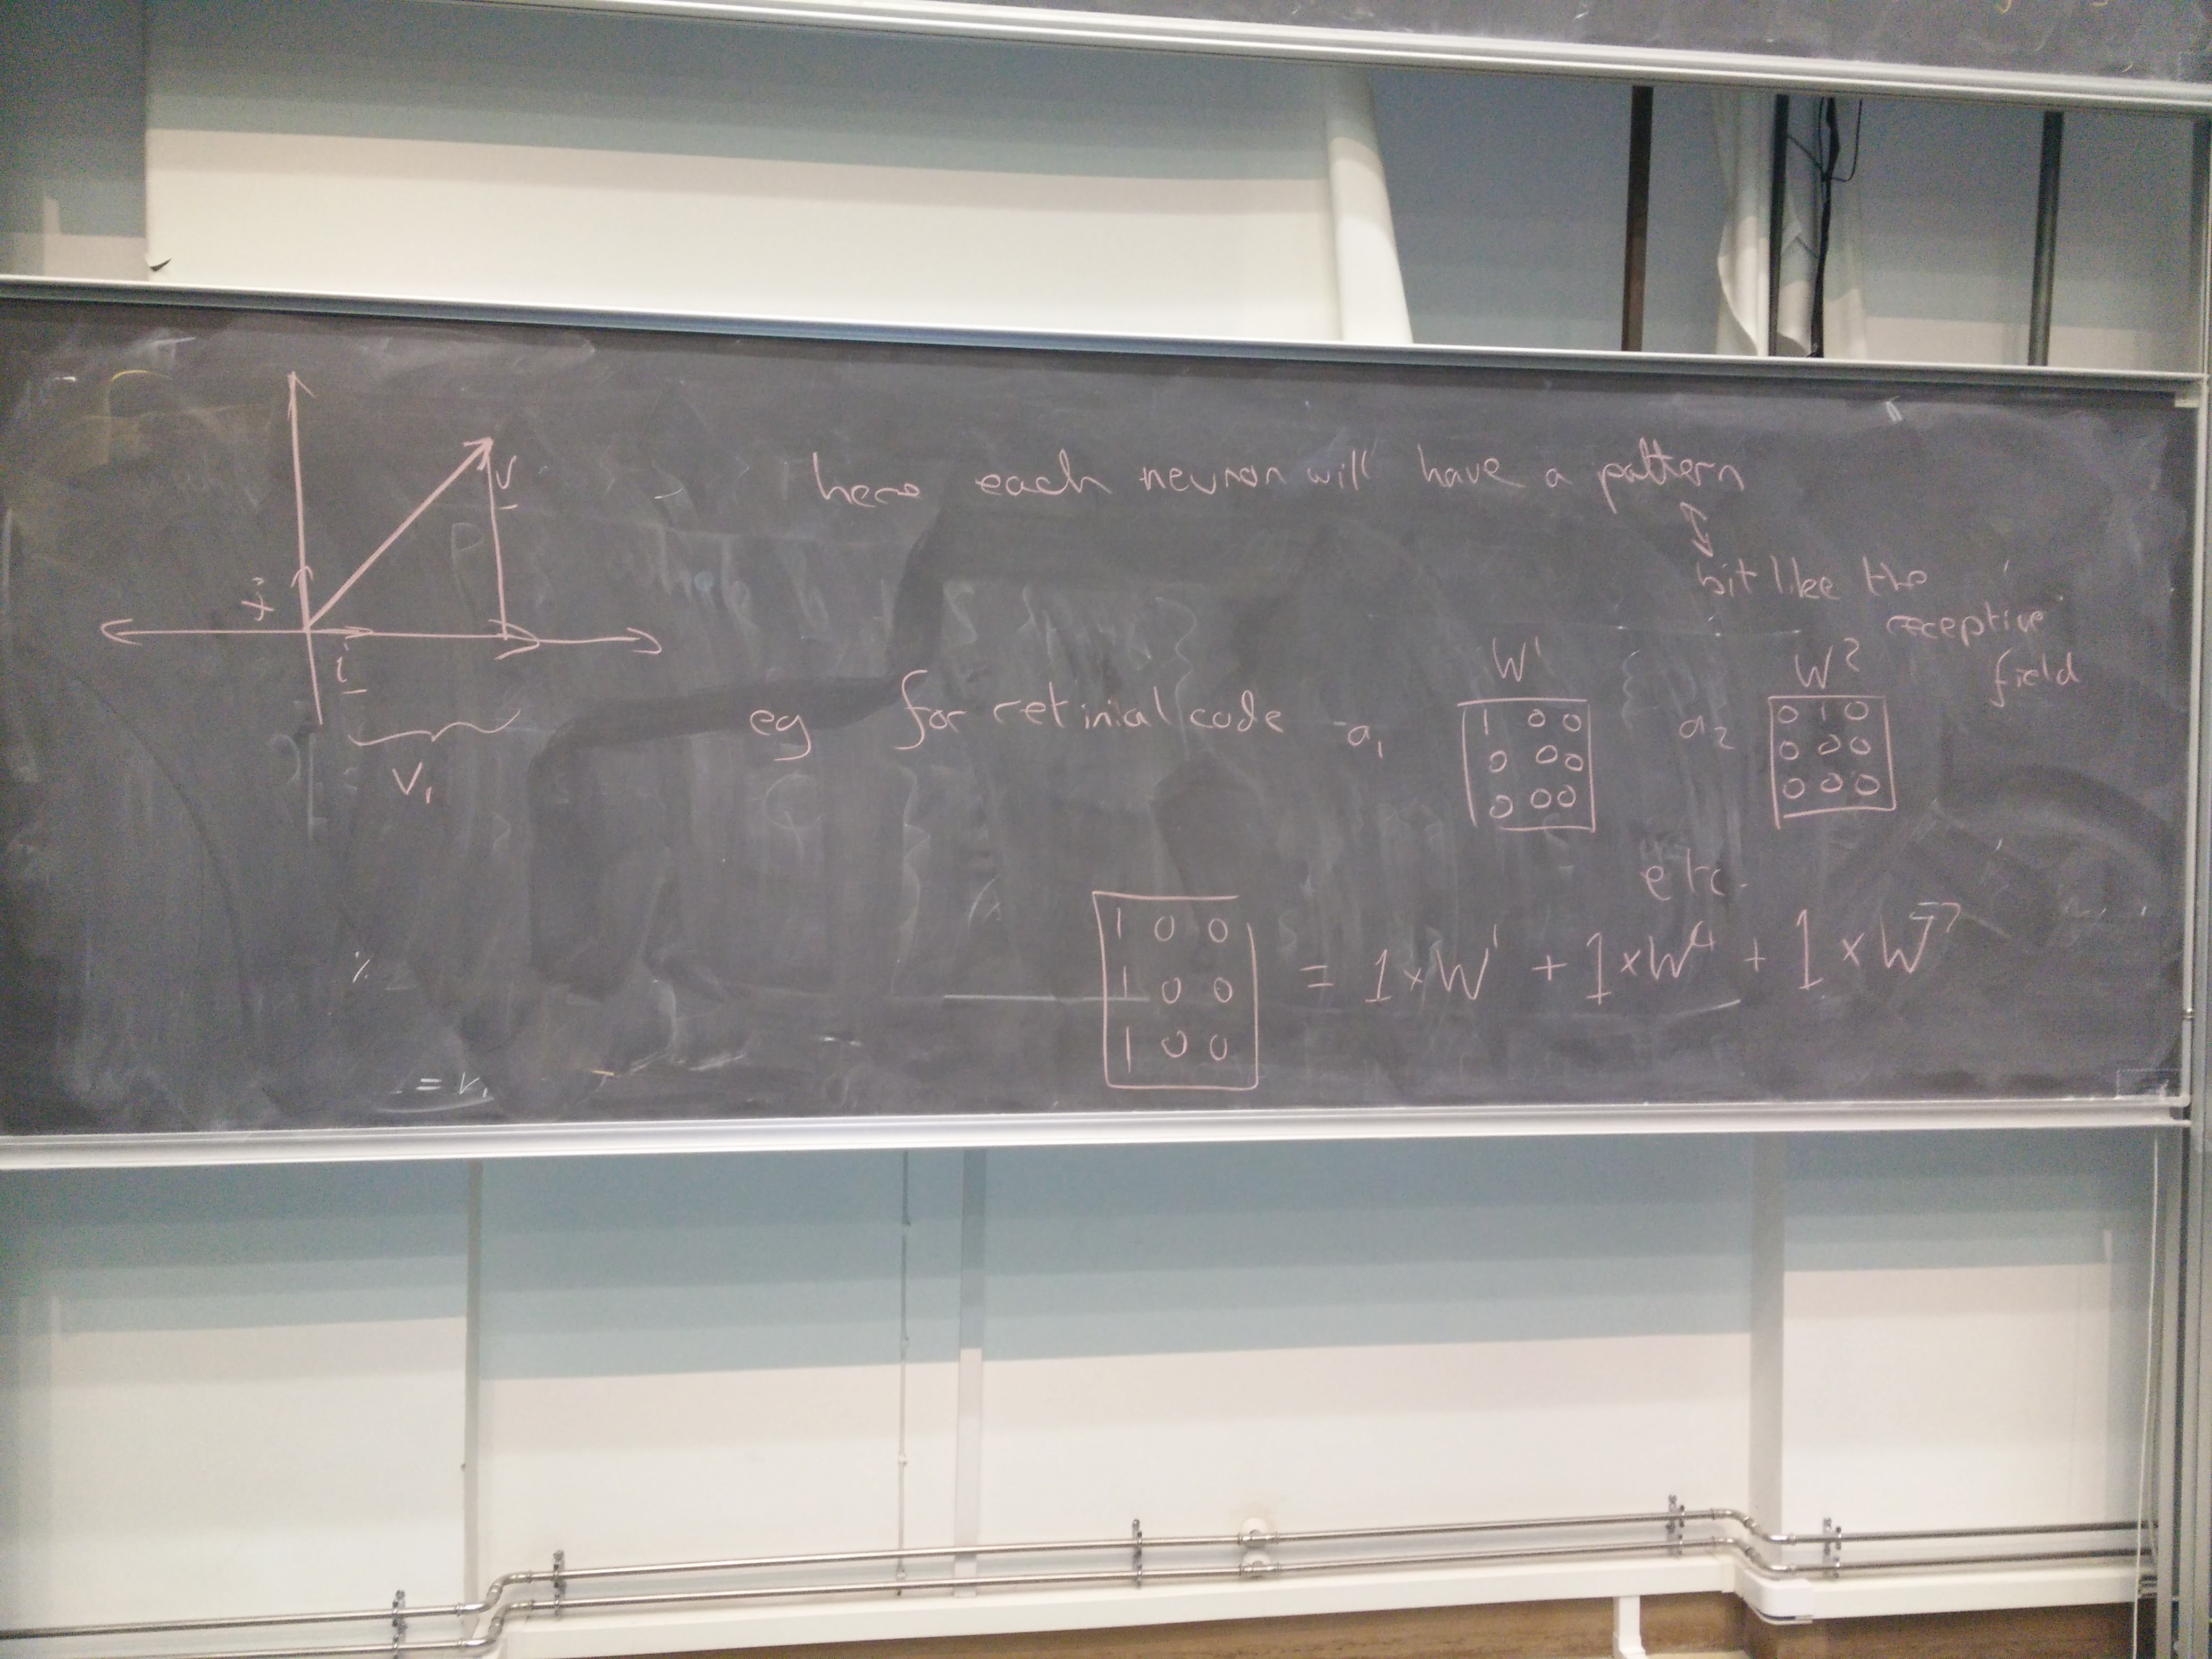 v
j
i
v₁
here each neuron will have a pattern
bit like the
receptive
field
eg for retinial code a₁
W¹
1 0 0
0 0 0
0 0 0
a₂
W²
0 1 0
0 0 0
0 0 0
etc.
1 0 0
1 0 0
1 0 0
= 1×W¹ + 1×W⁴ + 1×W⁷
= v₁